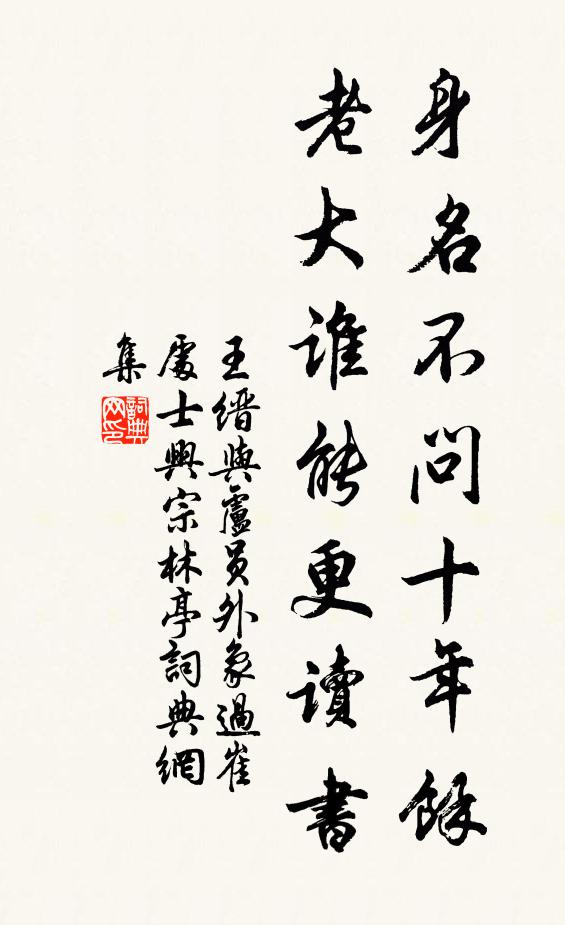 身名不問十年餘
老大誰能更讀書
王縉與盧員外象過崔
處士興宗林亭詞典網
集
詞典
网印